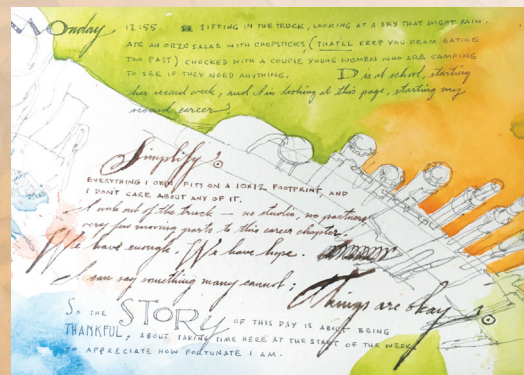 Monday 12:55 SITTING IN THE TRUCK, LOOKING AT A SKY THAT MIGHT RAIN.
ATE AN ORZO SALAD WITH CHOPSTICKS (THAT'LL KEEP YOU FROM EATING
TOO FAST) CHECKED WITH A COUPLE YOUNG WOMEN WHO ARE CAMPING
TO SEE IF THEY NEED ANYTHING. D is at school, starting
her second week, and I'm looking at this page, starting my
second career?
Simplify?
EVERYTHING I OWN FITS ON A 10X12 FOOTPRINT, AND
I DON'T CARE ABOUT ANY OF IT.
I work out of the truck — no studio, no partners
very few moving parts to this career chapter.
We have enough. We have hope.
I can say something many cannot:
Things are okay
SO THE STORY OF THIS DAY IS ABOUT BEING
THANKFUL, ABOUT TAKING TIME HERE AT THE START OF THE WEEK
TO APPRECIATE HOW FORTUNATE I AM.